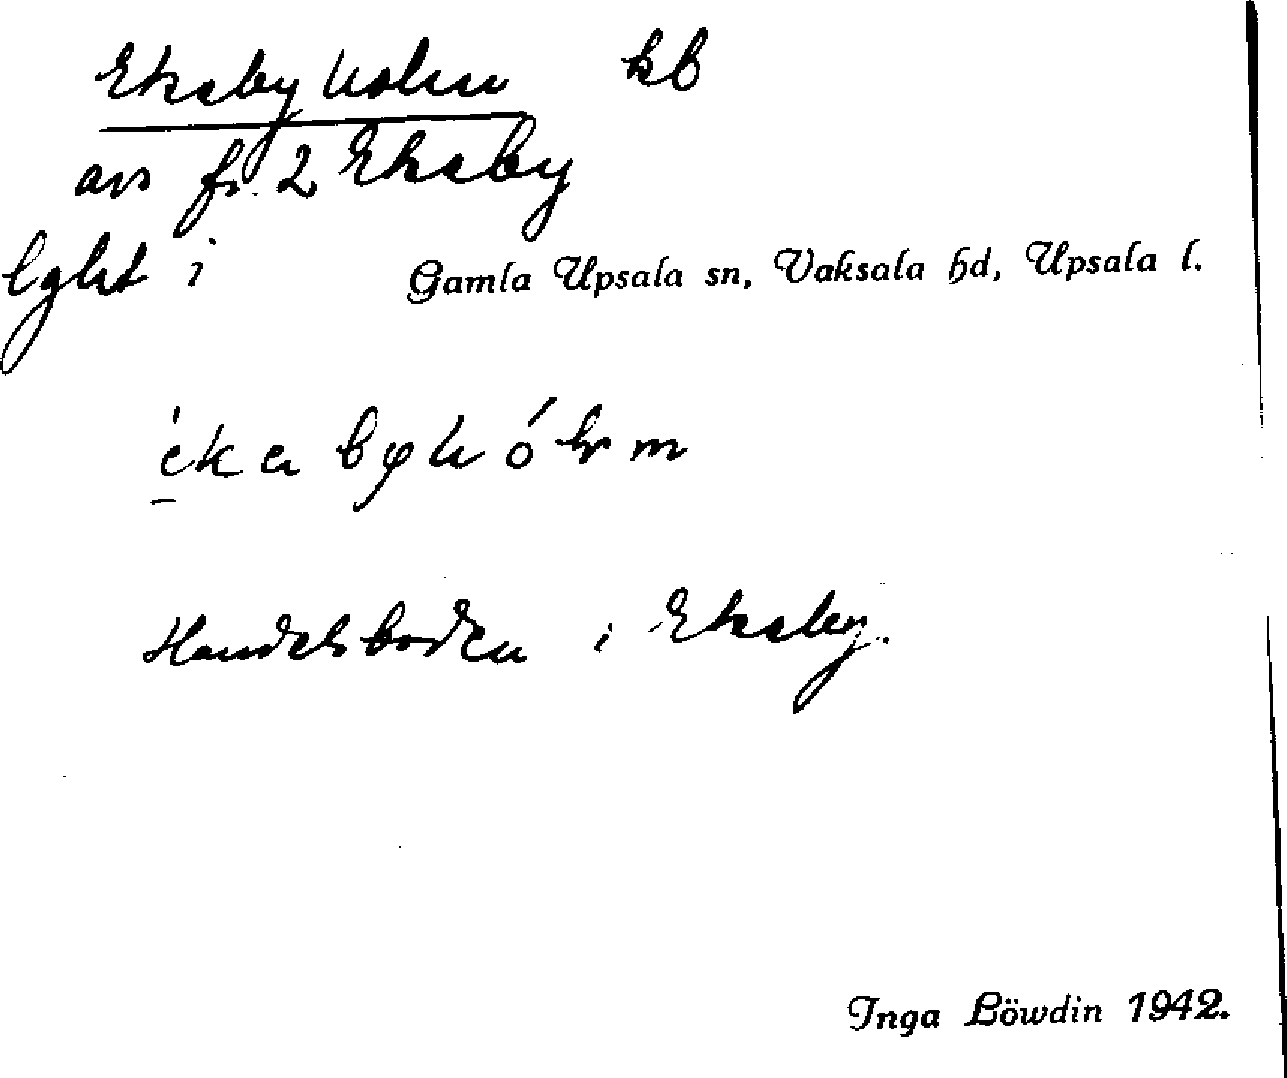 Ekebyholm kb
avs fr. 2 Ekeby
lght i Gamla Upsala sn, Vaksala hd, Upsala l.
Handelsboden i Ekeby.
Inga Löwdin 1942.